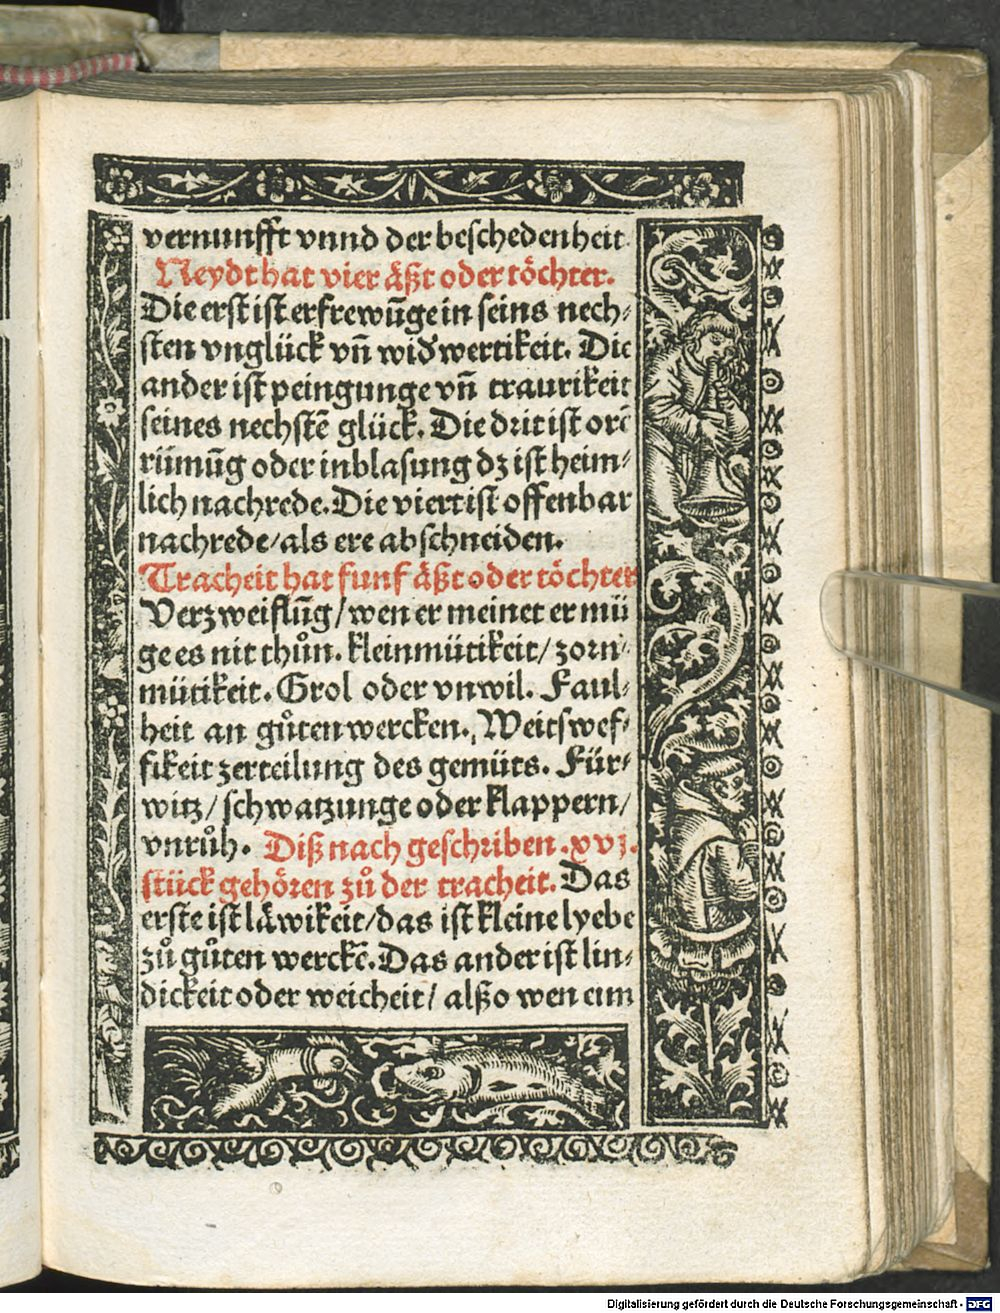 vernunfft vnnd der beschedenheit
Neydt hat vier äßt oder töchter.
Die erst ist erfrewūge in seins nech⸗
sten vnglück vn̄ wid̕wertikeit. Die
ander ist peingunge vn̄ traurikeit
seines nechstē glück. Die drit ist orē
rümūg oder inblasung dz ist heim⸗
lich nachrede. Die viert ist offenbar
nachrede/als ere abschneiden.
Tracheit hat funf äßt oder töchter
Verzweiflūg/wen er meinet er mü
ge es nit thůn. kleinmütikeit/zorn⸗
mütikeit. Grol oder vnwil. Faul⸗
heit an gůten wercken. Weitswef⸗
fikeit zerteilung des gemüts. Für⸗
witz/schwatzunge oder klappern/
vnrůh. Diß nach geschriben .xvj.
stück gehören zů der tracheit. Das
erste ist läwikeit/das ist kleine lyebe
zů gůten werckē. Das ander ist lin⸗
dickeit oder weicheit/ alßo wen eim
Digitalisierung gefördert durch die Deutsche Forschungsgemeinschaft - DFG